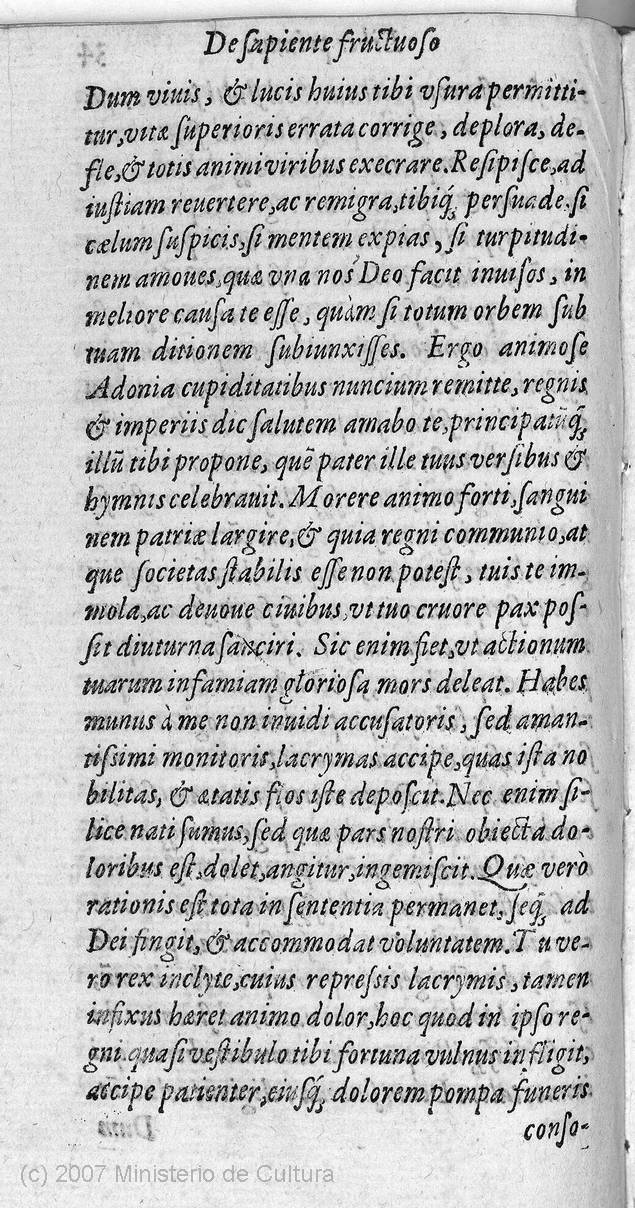 De sapiente fructuoso
Dum viuis, & lucis huius tibi vsura permitti-
tur, vitæ superioris errata corrige, deplora, de-
fle, & totis animi viribus execrare. Resipisce, ad
iustiam reuertere, ac remigra, tibiq́; persuade. si
cælum suspicis, si mentem expias, si turpitudi-
nem amoues, quæ vna nos Deo facit inuisos, in
meliore causa te esse, quàm si totum orbem sub
tuam ditionem subiunxisses. Ergo animose
Adonia cupiditatibus nuncium remitte, regnis
& imperiis dic salutem amabo te, principatũq́;
illũ tibi propone, quẽ pater ille tuus versibus &
hymnis celebrauit. Morere animo forti, sangui
nem patriæ largire, & quia regni communio, at
que societas stabilis esse non potest, tuis te im-
mola, ac deuoue ciuibus, vt tuo cruore pax pos-
sit diuturna sanciri. Sic enim fiet, vt actionum
tuarum infamiam gloriosa mors deleat. Habes
munus à me non inuidi accusatoris, sed aman-
tissimi monitoris, lacrymas accipe, quas ista no
bilitas, & ætatis flos iste deposcit. Nec enim si-
lice nati sumus, sed quæ pars nostri obiecta do-
loribus est, dolet, angitur, ingemiscit. Quæ verò
rationis est tota in sententia permanet, seq́; ad
Dei fingit, & accommodat voluntatem. Tu ve-
rò rex inclyte, cuius repressis lacrymis, tamen
infixus hæret animo dolor, hoc quod in ipso re-
gni quasi vestibulo tibi fortuna vulnus infligit,
accipe patienter, eiusq́; dolorem pompa funeris
conso-
(c) 2007 Ministerio de Cultura